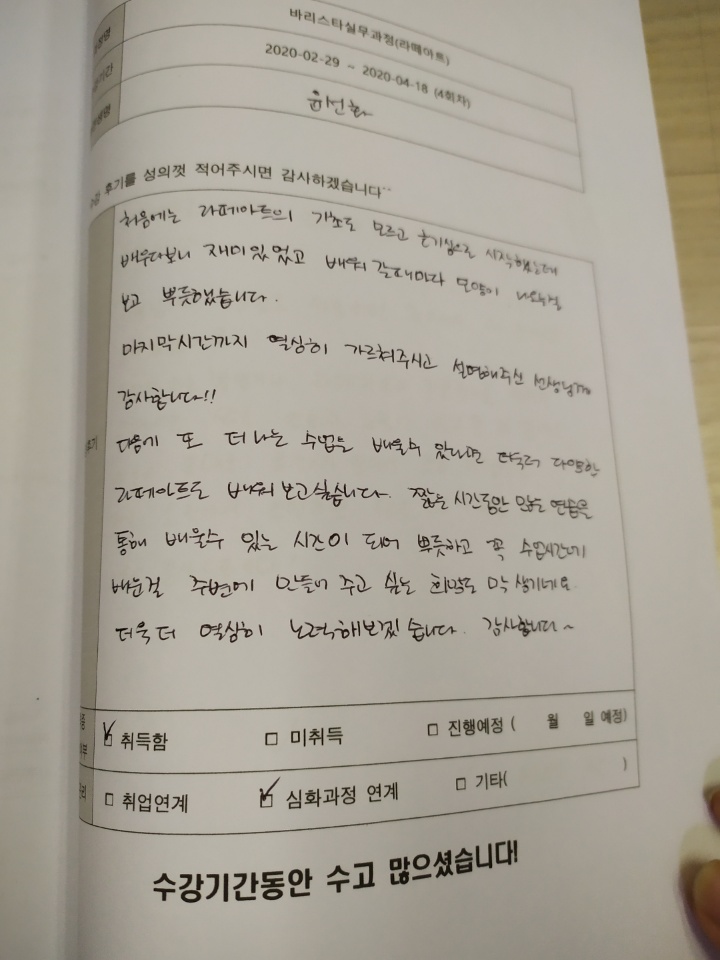 정명 바리스타실무과정(라떼아트)
기간 2020-02-29 ~ 2020-04-18 (4회차)
생명
후기를 성의껏 적어주시면 감사하겠습니다^^
처음에는 라떼아트의 기초도 모르고 호기심으로 시작했는데
배우다보니 재미있었고 배워갈때마다 모양이 나오는걸
보고 뿌듯했습니다.
마지막시간까지 열심히 가르쳐주시고 설명해주신 선생님께
감사합니다!!
다음에 또 더 나는 수업을 배울수 있다면 더욱더 다양한
라떼아트도 배워보고싶습니다. 짧은 시간동안 많은 연습을
통해 배울수 있는 시간이 되어 뿌듯하고 꼭 수업시간에
배운걸 주변에 만들어 주고 싶은 희망도 막 생기네요
더욱더 열심히 노력해보겠습니다. 감사합니다~
취득함 미취득 진행예정 ( 월 일 예정)
취업연계 심화과정 연계 기타( )
수강기간동안 수고 많으셨습니다!